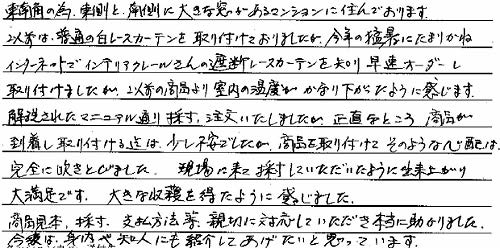 東南角の為、東側と、南側に大きな窓があるマンションに住んでおります。
以前は、普通の白レースカーテンを取り付けておりましたが、今年の猛暑にたまりかね
インターネットでインテリアクレールさんの遮断レースカーテンを知り早速オーダーし
取り付けましたが、以前の商品より室内の温度がかなり下がったように感じます。
解説されたマニュアル通り採寸、注文いたしましたが、正直なところ、商品が
到着し取り付ける迄は、少し不安でしたが、商品を取り付けてそのような心配は、
完全に吹きとびました。現場に来て採寸していただいたような出来上がり
大満足です。大きな収穫を得たように感じました。
商品見本、採寸、支払方法等、親切に対応していただき本当に助かりました。
今後は、身内や知人にも紹介してあげたいと思っています。